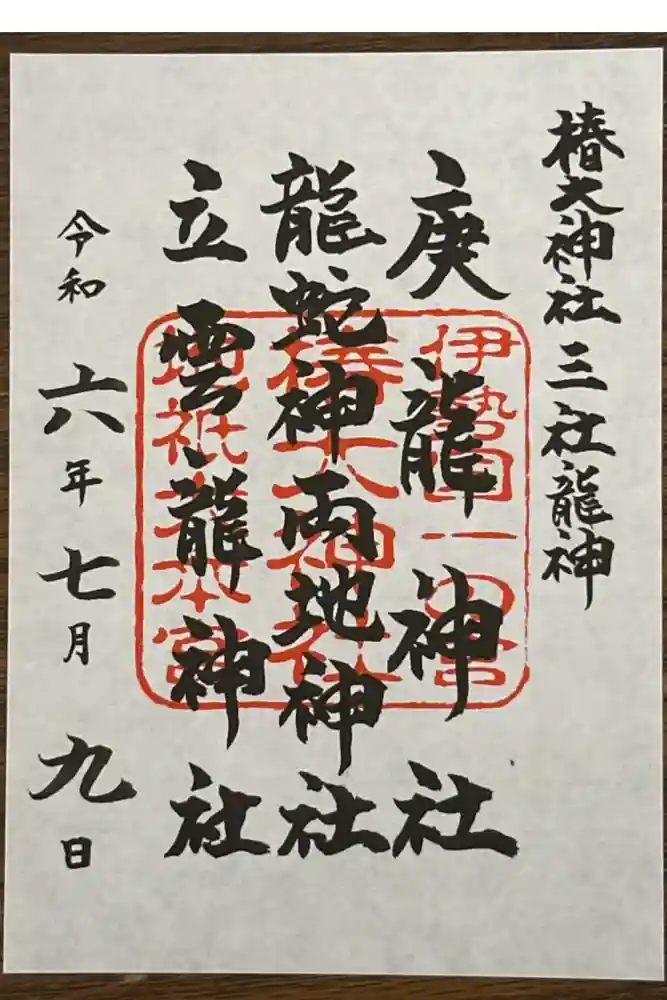 椿大神社三社龍神
庚龍神社
龍蛇神両地神社
立雲龍神社
令和六年七月九日
伊勢國一の宮
椿大神社
地祇大本宮